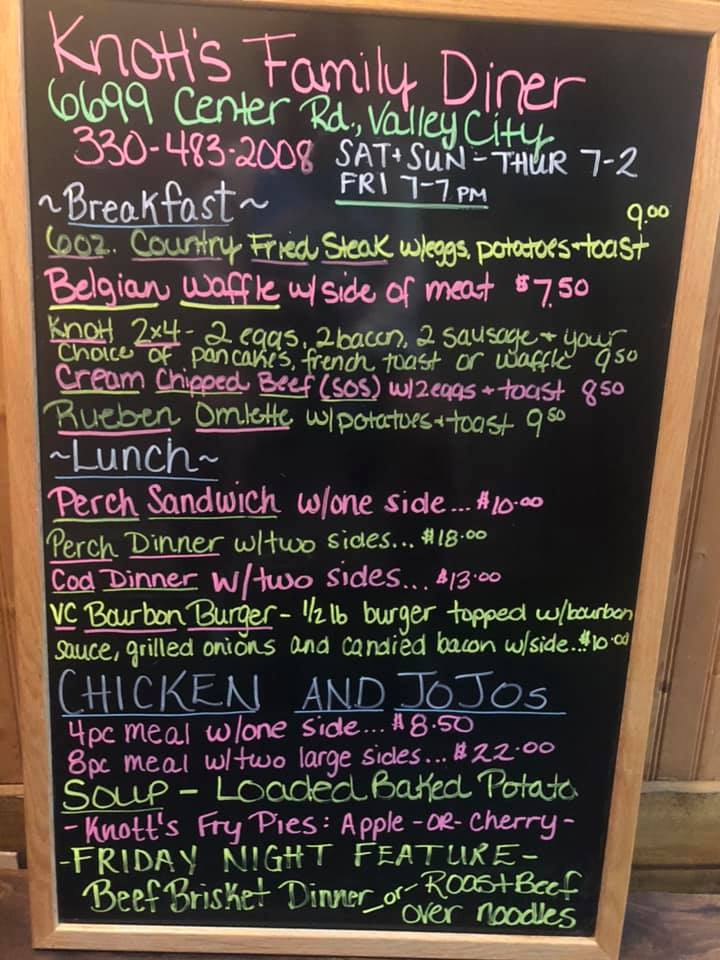 Knott's Family Diner
6699 Center Rd., Valley City
330-483-2008 SAT+SUN-THUR 7-2
FRI 7-7 PM
~Breakfast~
9.00
6oz. Country Fried Steak w/eggs, potatoes+toast
Belgian Waffle w/ side of meat $7.50
Knott 2x4 - 2 eggs, 2 bacon, 2 sausage + your
Choice of pancakes, french toast or waffle 9.50
Cream Chipped Beef (SOS) w/2eggs + toast 8.50
Rueben Omlette w/potatoes+toast 9.50
~Lunch~
Perch Sandwich w/one side... $10.00
Perch Dinner w/two sides... $18.00
Cod Dinner w/two sides... $13.00
VC Bourbon Burger - 1/2 lb burger topped w/bourbon
sauce, grilled onions and candied bacon w/side...$10.00
CHICKEN AND JOJOS
4pc meal w/one side... $8.50
8pc meal w/two large sides... $22.00
Soup - Loaded Baked Potato
- Knott's Fry Pies: Apple -OR- Cherry -
-FRIDAY NIGHT FEATURE-
Beef Brisket Dinner -or- Roast Beef
over noodles